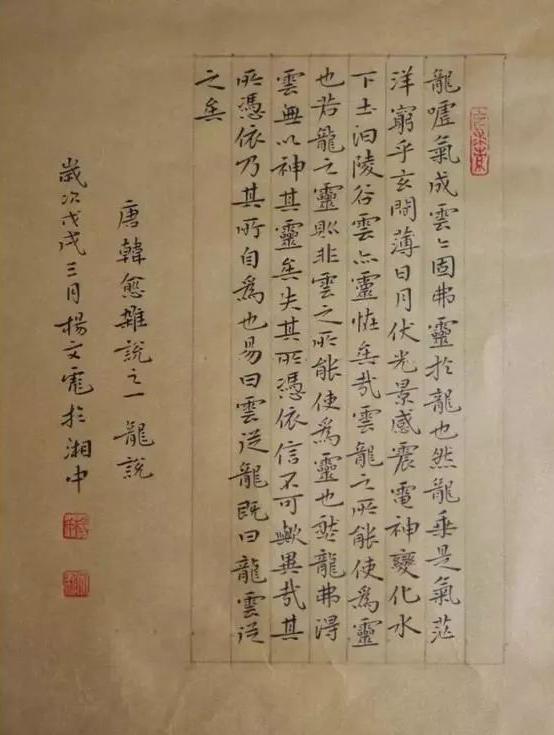 龍嘘氣成雲〻固弗靈於龍也然龍乘是氣茫
洋窮乎玄間薄日月伏光景感震電神變化水
下土汩陵谷雲亦靈恠矣哉雲龍之所能使爲靈
也若龍之靈則非雲之所能使爲靈也然龍弗得
雲無以神其靈矣失其所憑依信不可歟異哉其
所憑依乃其所自爲也易曰雲從龍既曰龍雲從
之矣
唐韓愈雜說之一龍說
歲次戊戌三月楊文於湘中